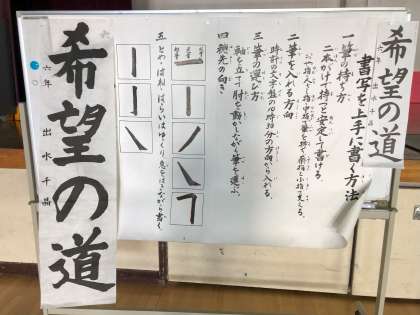 希望の道
六年 出水千晶
書写を上手に書く方法
一 筆の持ち方
二本がけで持つと安定して書ける。
二 筆を入れる方向
時計の文字盤の10時30分の方向から入れる。
三 筆の運び方
軸を立て、肘を動かしながら筆を運ぶ。
四 穂先の向き
五 とめ、はね、はらいはゆっくり息をはきながら書く。
希望の道
六年 出水千晶